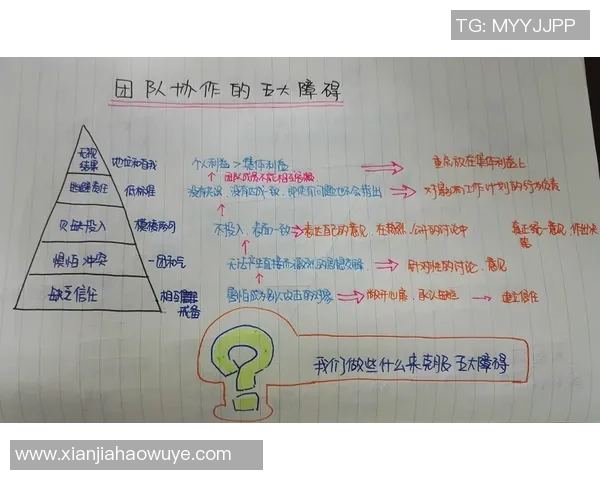 TG: MYYJJPP
团队协作的五大障碍
无视结果 地位和自我 个人利益 > 集体利益 重点放在集体利益上
团队成员不能相互
逃避责任 低标准 没有共识，没有达成一致，即使有问题也不会指出 对影响工作计划的行为负责
欠缺投入 模棱两可 不投入，表面一致 表达自己的意见，在激烈、公开的讨论中 真正统一意见，作出决策
惧怕冲突 一团和气 无法产生直接而激烈的思想交锋 针对性的讨论、意见
缺乏信任 相互戒备 害怕成为别人攻击的对象 敞开心扉，承认 建立信任
我们做些什么来克服五大障碍
www.xianjiahaowuye.com